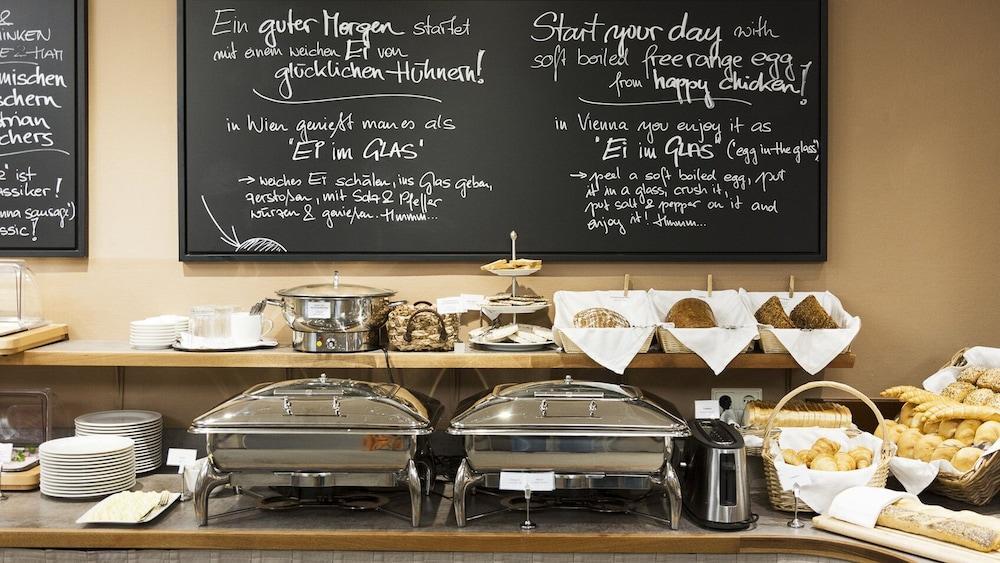 &
INKEN
mischen
schern
trian
chers
ist
assiker!
nna sausage)
ssic!
Ein guter Morgen startet
mit einem weichen Ei von
glücklichen Hühnern!
in Wien genießt man es als
"Ei im GLAS"
→ weiches Ei schälen, ins Glas geben,
zerstoßen, mit Salz & Pfeffer
würzen & genießen. Hmmm...
Start your day with
soft boiled freerange egg
from happy chicken!
in Vienna you enjoy it as
"Ei im GLAS" ('egg in the glass')
→ peel a soft boiled egg, put
it in a glass, crush it,
put salt & pepper on it and
enjoy it! Hmmm...